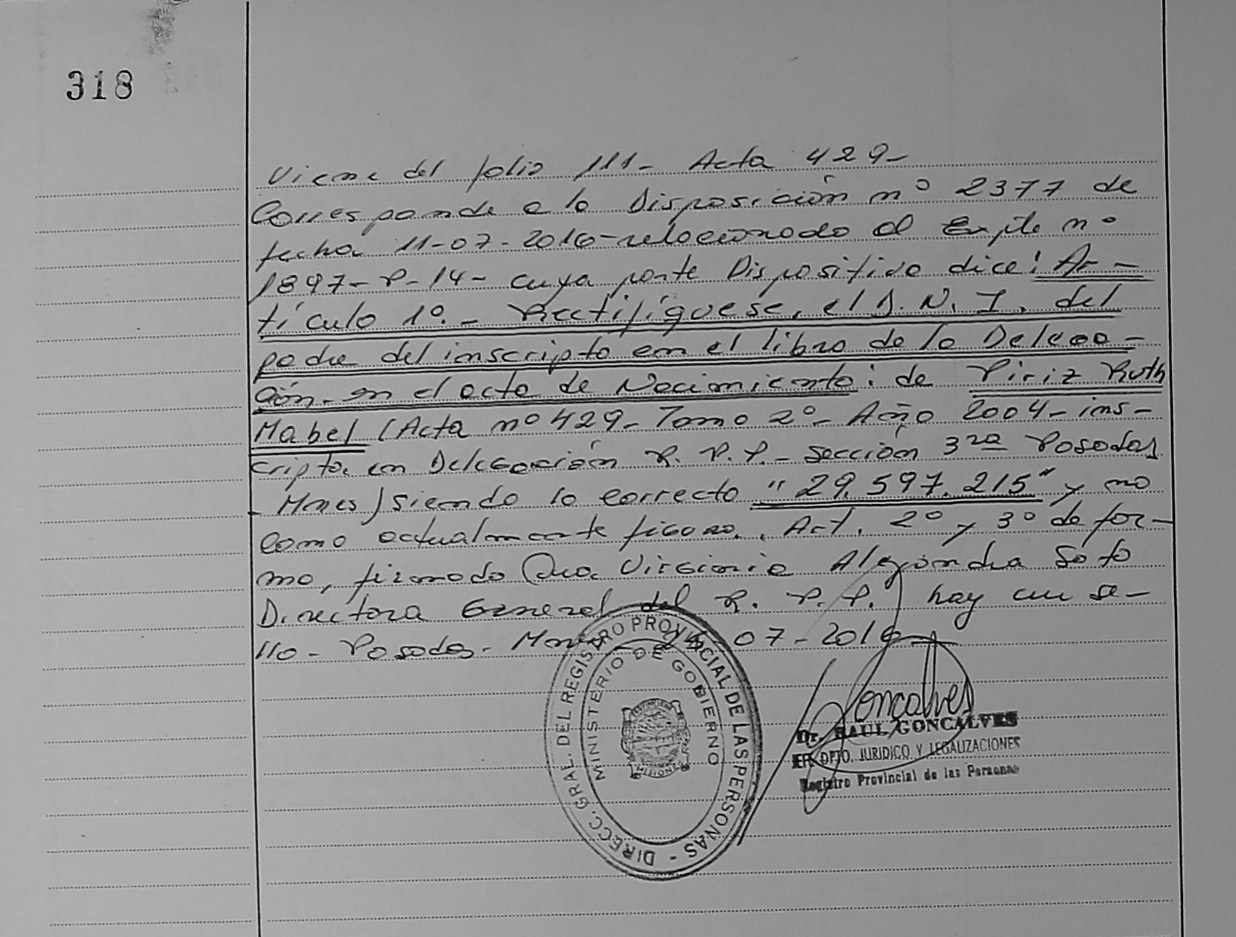 318
Viene del folio 111- Acta 429-
Corresponde a la Disposición nº 2377 de
fecha 11-07-2016- relacionado al Expte nº
1897-P-14- cuya parte Dispositiva dice: Ar-
tículo 1º.- Rectifíquese, el D.N.I. del
padre del inscripto en el libro de la Delega-
ción- en el acta de Nacimiento: de Piriz Ruth
Mabel (Acta nº 429- Tomo 2º- Año 2004- ins-
cripta en Delegación R.P.P.- sección 3ra Posadas
- Mnes) siendo lo correcto "29.597.215" y no
como actualmente figura. Art. 2º y 3º de for-
ma, firmado Dra. Virginia Alejandra Soto
Directora General del R.P.P. hay un se-
llo- Posadas- 07-2016-
DIRECC. GRAL. DEL REGISTRO PROVINCIAL DE LAS PERSONAS -
MINISTERIO DE GOBIERNO
MISIONES
Goncalves
Dr. RAUL GONCALVES
DPTO. JURIDICO Y LEGALIZACIONES
Registro Provincial de las Personas